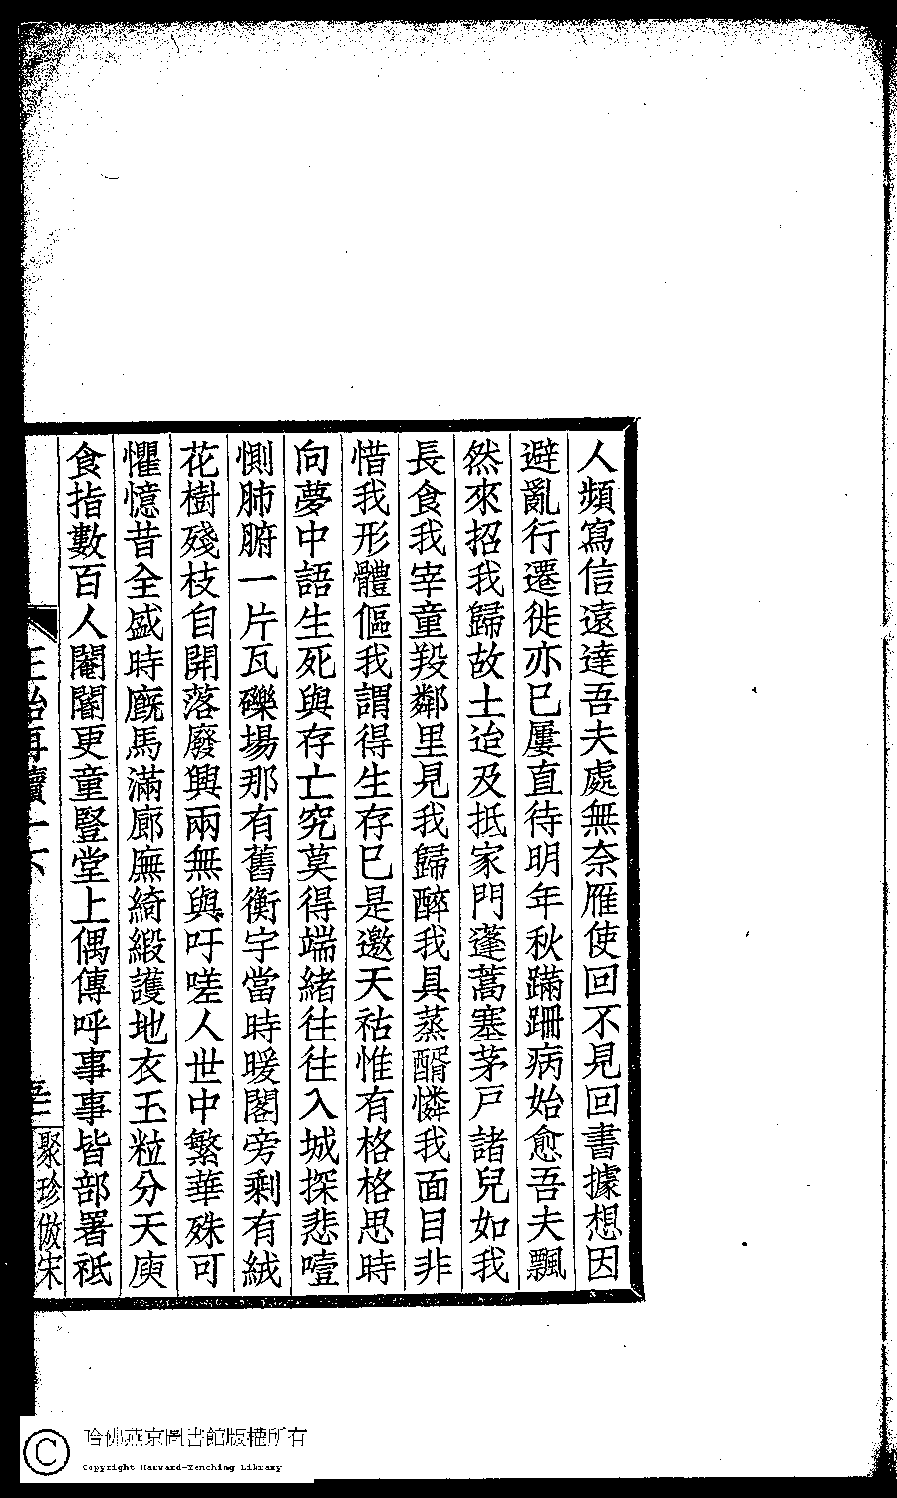 人頻寫信遠達吾夫處無奈雁使回不見回書據想因
避亂行遷徙亦巳屢直待明年秋蹣跚病始愈吾夫飄
然來招我歸故土迨及抵家門蓬蒿塞茅戸諸兒如我
長食我宰童羖鄰里見我歸醉我具蒸醑憐我面目非
惜我形體傴我謂得生存巳是邀天祜惟有格格思時
向夢中語生死與存亡究莫得端緒往往入城探悲噎
惻肺腑一片瓦礫場那有舊衡宇當時暖閣旁剩有絨
花樹殘枝自開落廢興兩無與吁嗟人世中繁華殊可
懼憶昔全盛時廐馬滿廊廡綺緞護地衣玉粒分天庾
食指數百人閹闇更童豎堂上偶傳呼事事皆部署祗
聚珍倣宋
哈佛燕京圖書館版權所有
Copyright Harvard-Yenching Library